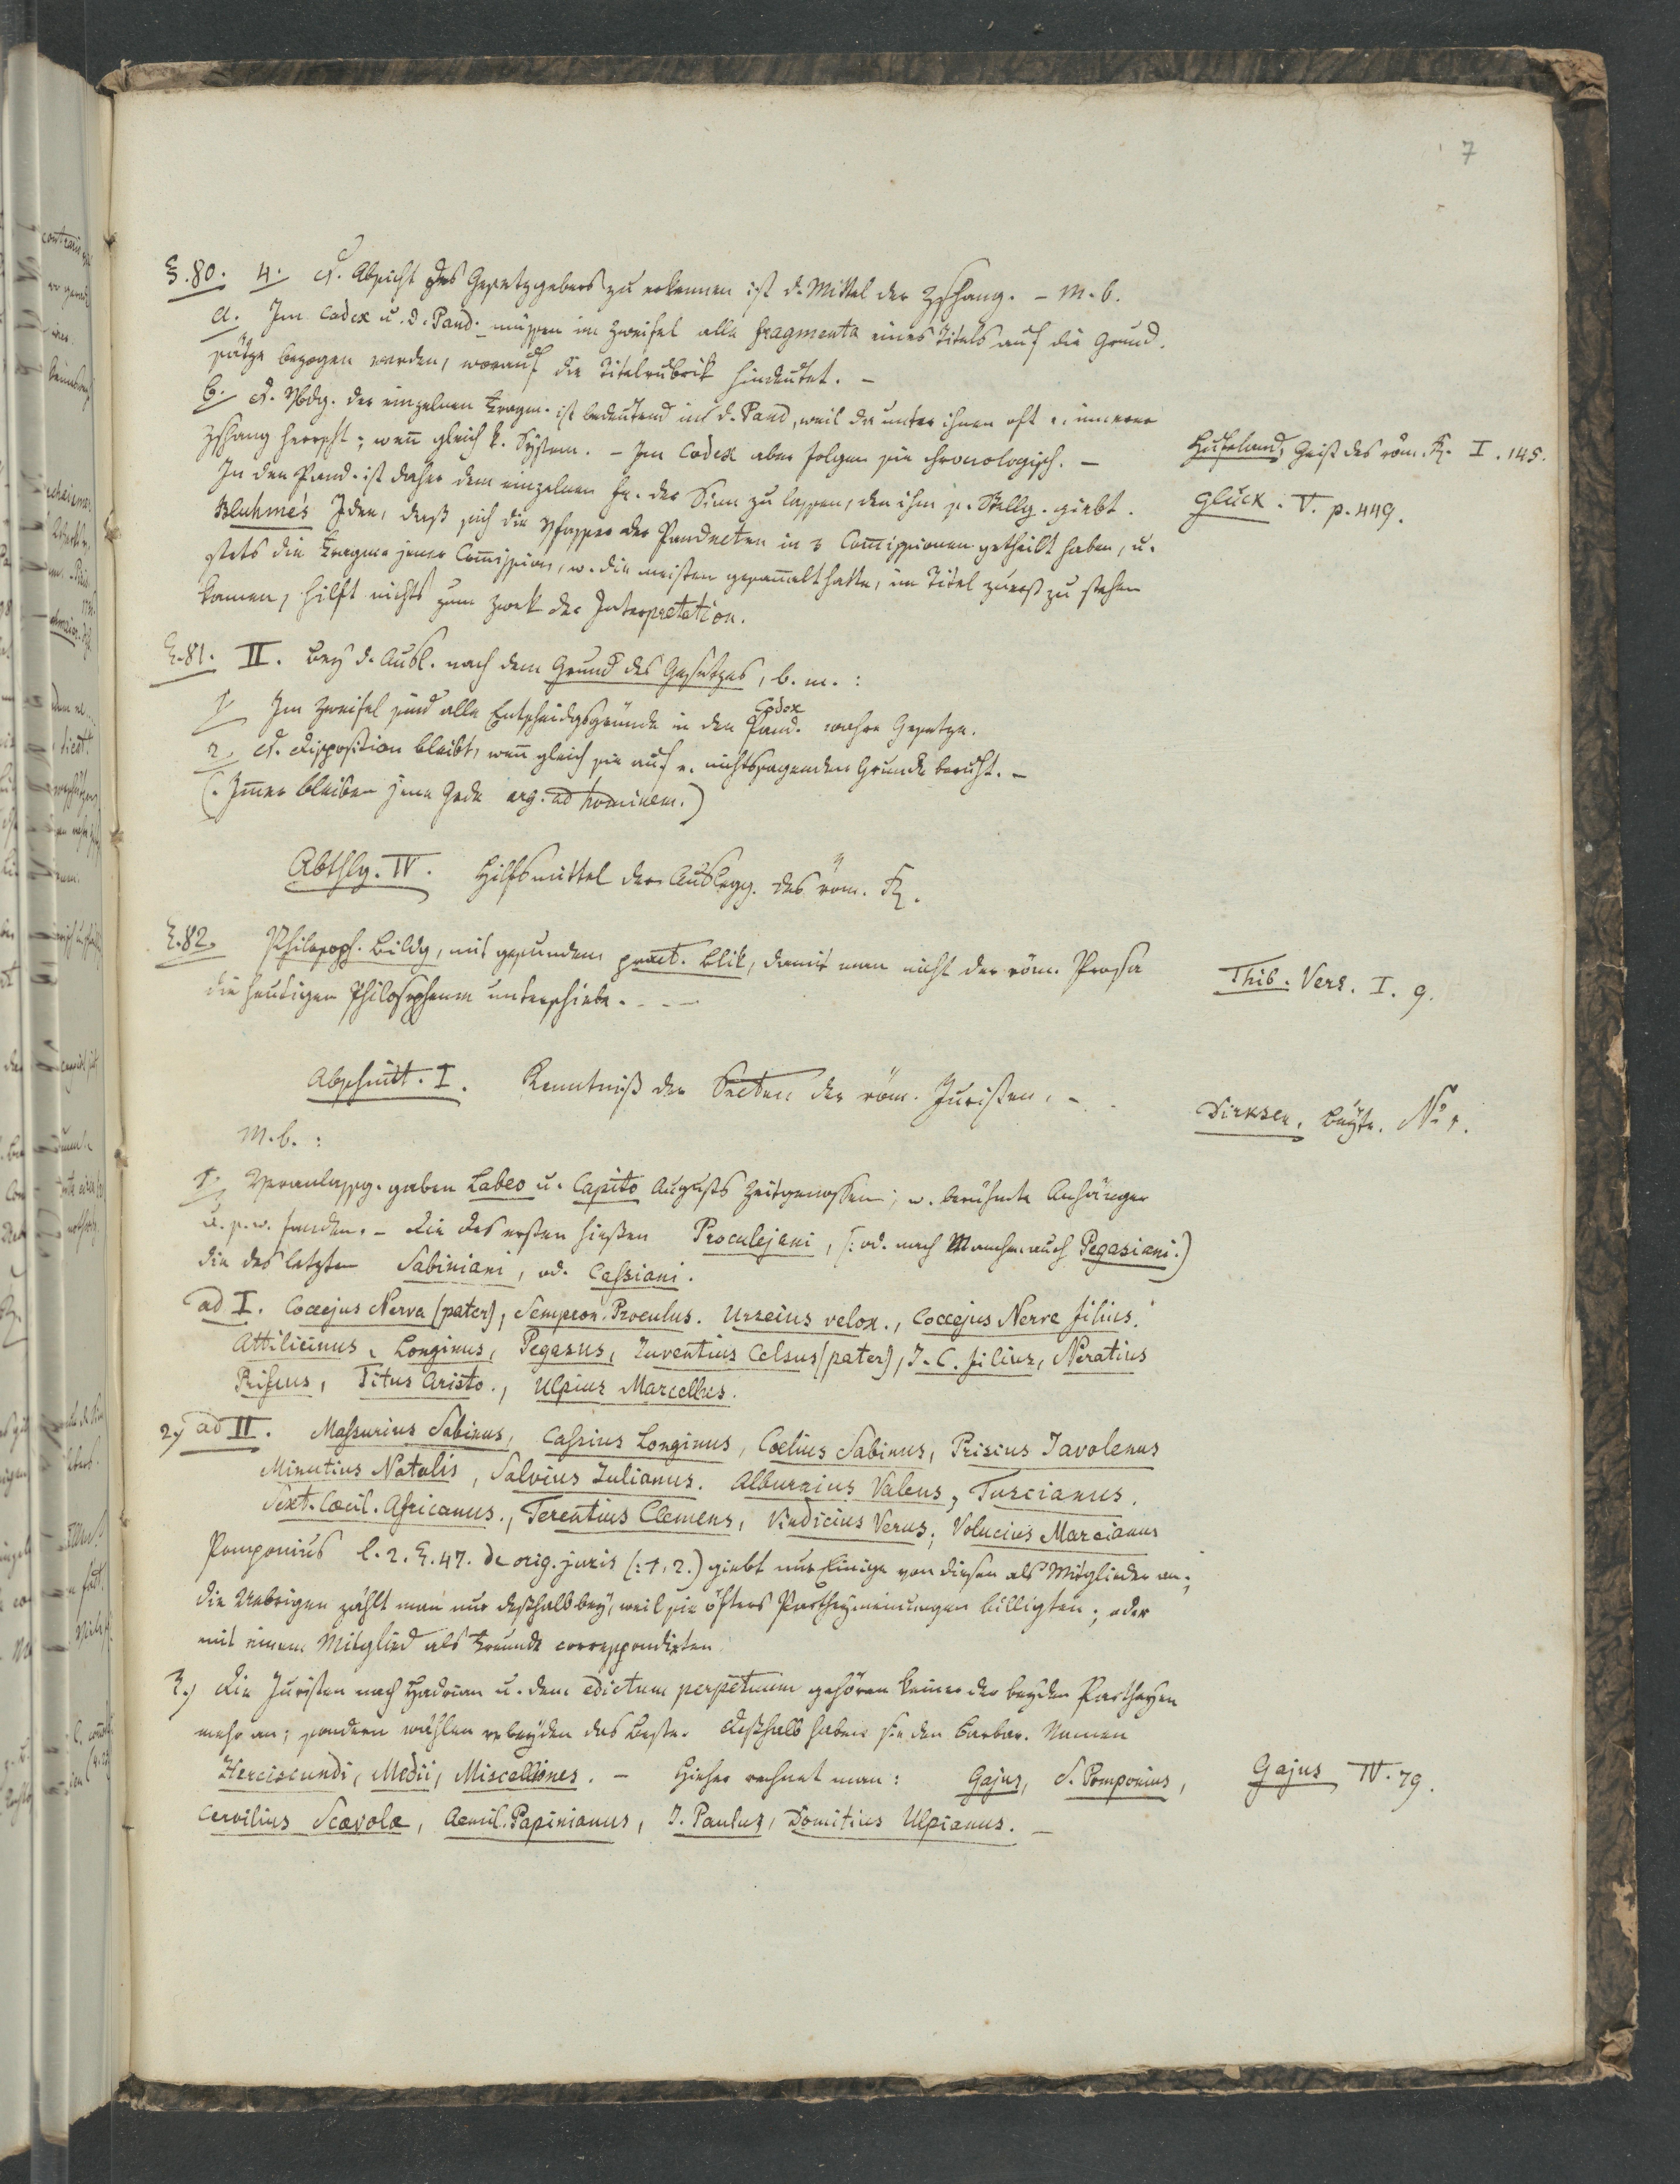 7
§.80. 4. D. Absicht des Gesetzgebers zu erkennen ist d. Mittel der Zshang. – M. b.
a. Im Codex u. d. Pand. müssen im Zweifel alle fragmenta eines Titels auf die Grund-
sätze bezogen werden, worauf die Titelrubrik hindeutet. –
b. D. Vbdg. der einzelnen Fragm. ist bedeutend in d. Pand, weil da unter ihnen oft e. innerer
Zshang herrscht; wenn gleich k. System. – Im Codex aber folgen sie chronologisch. –
Hufeland, Geist des röm. R. I. 145.
In den Pand. ist daher dem einzelnen fr. der Sinn zu lassen, den ihm s. Stellg. giebt.
Glück. V. p. 449.
Bluhme's Idee, daß sich die Vfasser der Pandecten in 3 Comissionen getheilt haben, u.
stets die Fragme jener Comission, w. die meisten gesamelt hatte, im Titel zuerst zu stehen
kamen, hilft nichts zum Zwek der Interpretation.
§.81. II. Bey d. Ausl. nach dem Grund des Gesetzes, b. m.:
1. Im Zweifel sind alle Entscheidgsgründe in den Pand. Codex wahre Gesetze.
2. D. Disposition bleibt, wenn gleich sie auf e. nichtssagenden Grunde beruht. –
(: Imer bleiben jene Gede arg. ad hominem.)
Abthlg. IV. Hilfsmittel der Auslegg. des röm. R.
§.82. Philosoph. Bildg, mit gesundem pract. Blik, damit man nicht der röm. Prosa
Thib. Vers. I. 9.
die heutigen Philosopheme unterschiebe. – –
Abschnitt. I. Kenntniß der Secten der röm. Juristen. –
Dirksen, Beytr. No 1.
M. b.:
1. Veranlassg. gaben Labeo u. Capito Augusts Zeitgenossen; w. berühmte Anhänger
u. s. w. fanden. – Die des ersten hießen Proculejani, (: od. nach Manchen auch Pegasiani.)
die des letzten Sabiniani, od. Cassiani.
ad I. Coccejus Nerva (pater), Sempron. Proculus. Urseius velox., Coccejus Nerve filius.
Attilicinus, Longinus, Pegasus, Juventius Celsus (pater), J. C. filius, Neratius
Priscus, Titus Aristo., Ulpius Marcellus.
2.) ad II. Massurius Sabinus, Cassius Longinus, Coelius Sabinus, Priscus Javolenus
Minutius Natalis, Salvius Julianus. Alburnius Valens, Tuscianus.
Sext. Coecil. Africanus., Terentius Clemens, Vindicius Verus, Volucius Marcianus
Pomponius l. 2. §. 47. de orig. juris (: 1, 2.) giebt nur Einige von diesen als Mitglieder an;
die Uebrigen zählt man nur deßhalb bey, weil sie öfters Partheymeinungen billigten; oder
mit einem Mitglied als Freunde correspondirten
3.) Die Juristen nach Hadrian u. dem edictum perpetuum gehören keiner der beyden Partheyen
mehr an; sondern wählen v. beyden das Beste. Deßhalb haben sie den barbar. Namen
Herciscundi, Medii, Miscelliones. – Hieher rechnet man: Gajus, S. Pomponius,
Gajus IV. 79.
Cervilius Scävola, Aemil. Papinianus, J. Paulus, Domitius Ulpianus. –